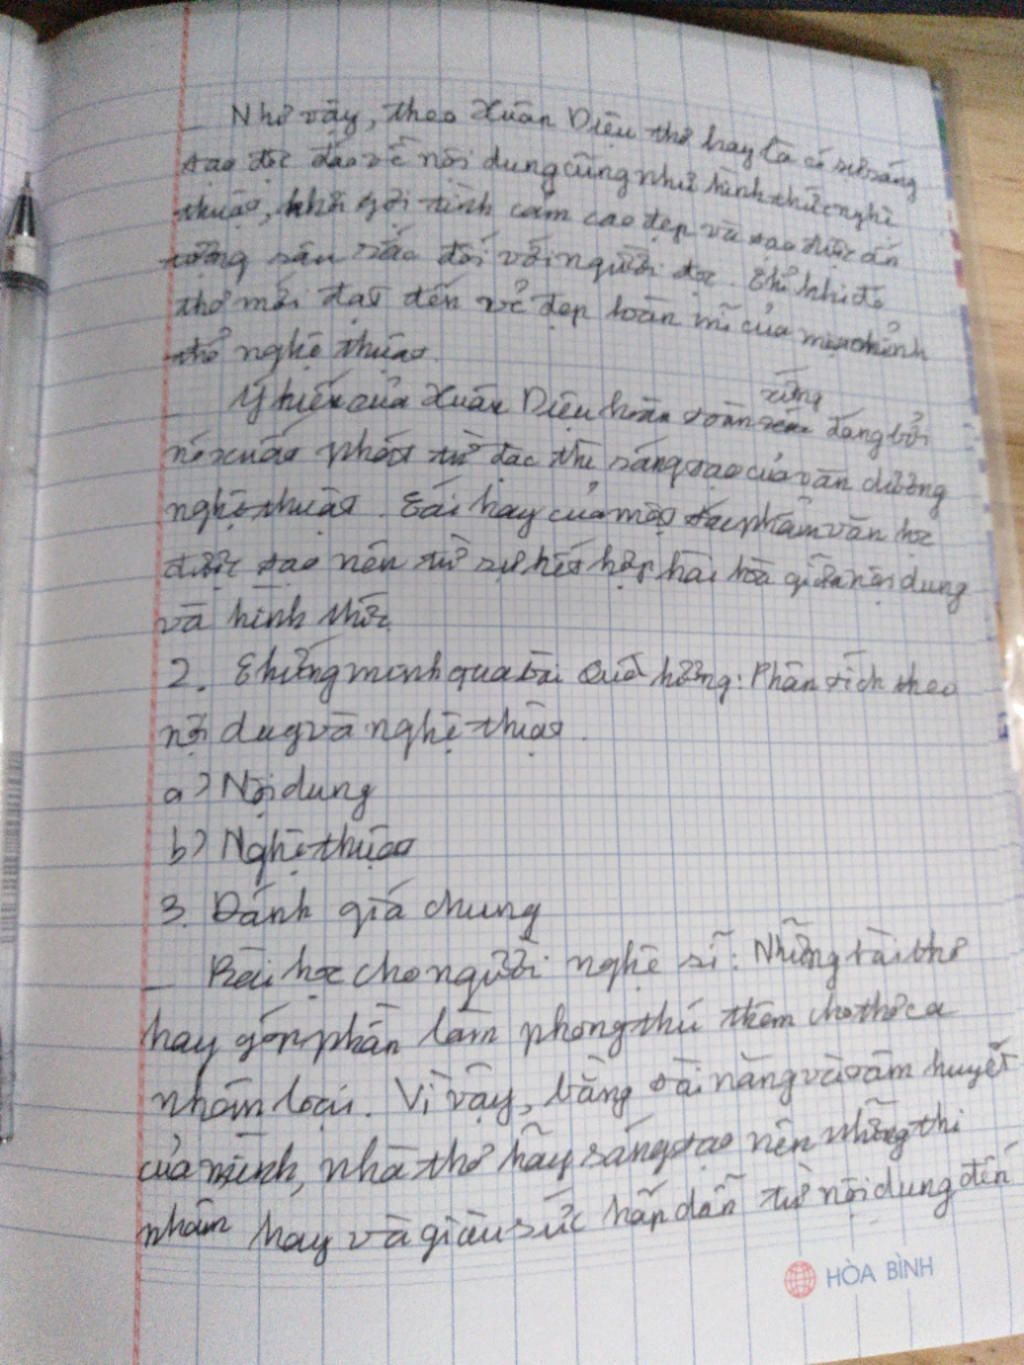 _ Như vậy, theo Xuân Diệu thơ hay là có sự sáng
tạo độc đáo về nội dung cũng như hình thức nghệ
thuật, khơi gợi tình cảm cao đẹp và tạo được ấn
tượng sâu sắc đối với người đọc. Chỉ khi đó
thơ mới đạt đến vẻ đẹp hoàn mĩ của một chỉnh
thể nghệ thuật.
xứng
_ Ý kiến của Xuân Diệu hoàn toàn đáng bởi
nó xuất phát từ đặc thù sáng tạo của văn chương
nghệ thuật. Cái hay của một tác phẩm văn học
được tạo nên từ sự kết hợp hài hòa giữa nội dung
và hình thức
2. Chứng minh qua bài Quê hương: Phân tích theo
nội dug và nghệ thuật.
a) Nội dung
b) Nghệ thuật
3. Đánh giá chung
_ Bài học cho người nghệ sĩ: Những bài thơ
hay góp phần làm phong thú thêm cho thơ ca
nhâm loại. Vì vậy, bằng tài năng và tâm huyết
của mình, nhà thơ hãy sáng tạo nên những thi
phẩm hay và giàu sức hấp dẫn từ nội dung đến
HÒA BÌNH